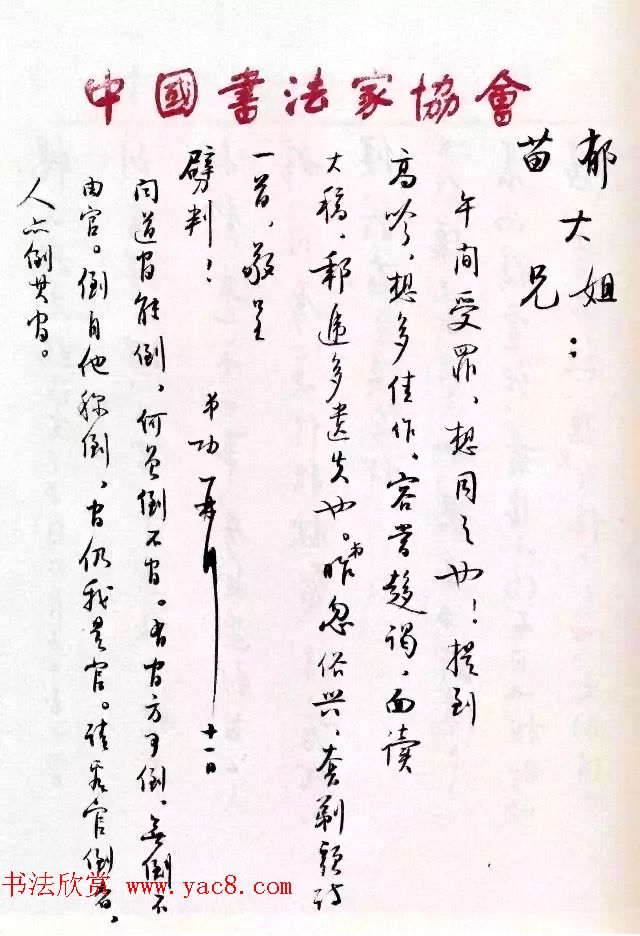 中國書法家協會
郁大姐：
苗兄
午间受罪、想同之也！提到
高吟、想多佳作、容当趋谒、面读
大稿、郵递多遗失也。弟昨忽俗兴、套剃頭诗
一首、敬呈
劈判！
弟功再拜 十一日
问道官能倒，何曾倒不官。有官方可倒，无倒不
由官。倒自他称倒，官仍我是官。请看官倒者，
人亦倒其官。
书法欣赏 www.yac8.com